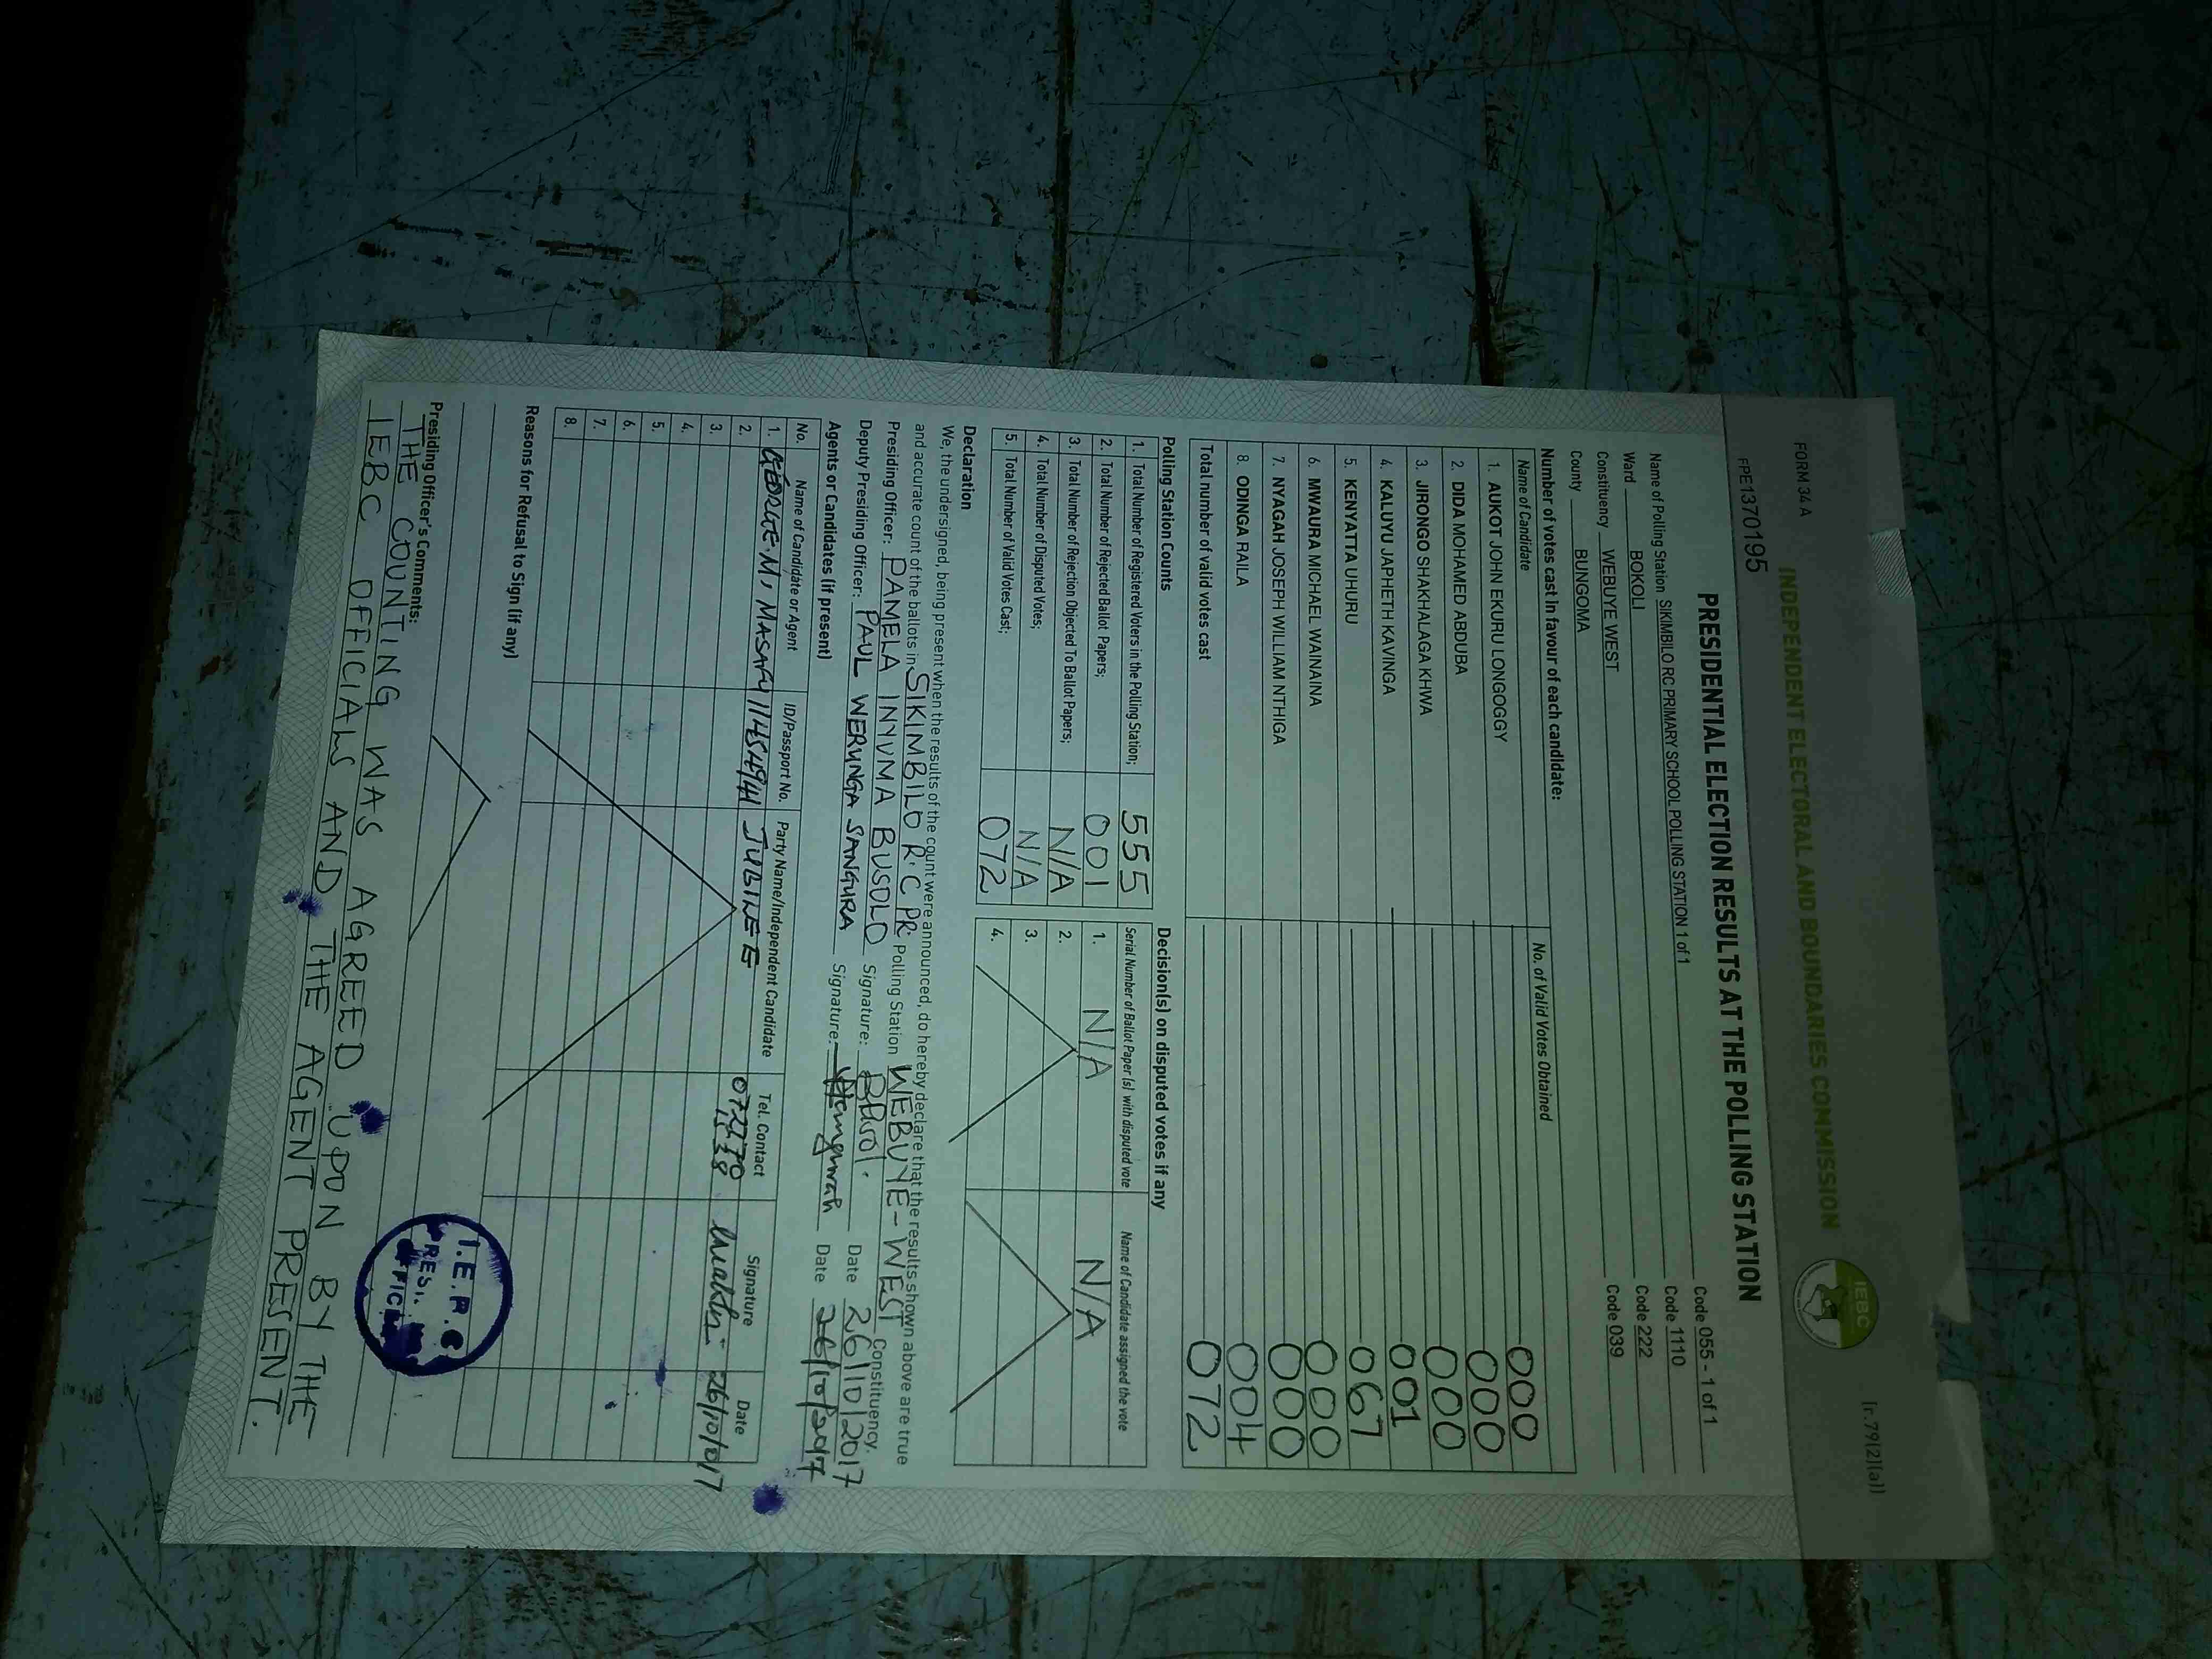 FORM 34A
[r.79(2)(a)]
INDEPENDENT ELECTORAL AND BOUNDARIES COMMISSION
IEBC
FPE1370195
PRESIDENTIAL ELECTION RESULTS AT THE POLLING STATION
Name of Polling Station SIKIMBILO RC PRIMARY SCHOOL POLLING STATION 1 of 1 Code 055 - 1 of 1
Ward BOKOLI Code 1110
Constituency WEBUYE WEST Code 222
County BUNGOMA Code 039
Number of votes cast in favour of each candidate:
Name of Candidate No. of Valid Votes Obtained
1. AUKOT JOHN EKURU LONGOGGY 000
2. DIDA MOHAMED ABDUBA 000
3. JIRONGO SHAKHALAGA KHWA 000
4. KALUYU JAPHETH KAVINGA 001
5. KENYATTA UHURU 067
6. MWAURA MICHAEL WAINAINA 000
7. NYAGAH JOSEPH WILLIAM NTHIGA 000
8. ODINGA RAILA 004
Total number of valid votes cast 072
Polling Station Counts
1. Total Number of Registered Voters in the Polling Station; 555
2. Total Number of Rejected Ballot Papers; 001
3. Total Number of Rejection Objected To Ballot Papers; N/A
4. Total Number of Disputed Votes; N/A
5. Total Number of Valid Votes Cast; 072
Decision(s) on disputed votes if any
Serial Number of Ballot Paper (s) with disputed vote Name of Candidate assigned the vote
1. N/A N/A
2.
3.
4.
Declaration
We, the undersigned, being present when the results of the count were announced, do hereby declare that the results shown above are true
and accurate count of the ballots in SIKIMBILO R.C PR Polling Station WEBUYE-WEST Constituency.
Presiding Officer: PAMELA INYUMA BUSOLO Signature: Date 26/10/2017
Deputy Presiding Officer: PAUL WERUNGA SANGURA Signature: Date 26/10/2017
Agents or Candidates (if present)
No. Name of Candidate or Agent ID/Passport No. Party Name/Independent Candidate Tel. Contact Signature Date
1. GEORGE.M. JUBILEE
2.
3.
4.
5.
6.
7.
8.
Reasons for Refusal to Sign (if any)
Presiding Officer's Comments:
THE COUNTING WAS AGREED UPON BY THE
IEBC OFFICIALS AND THE AGENT PRESENT.